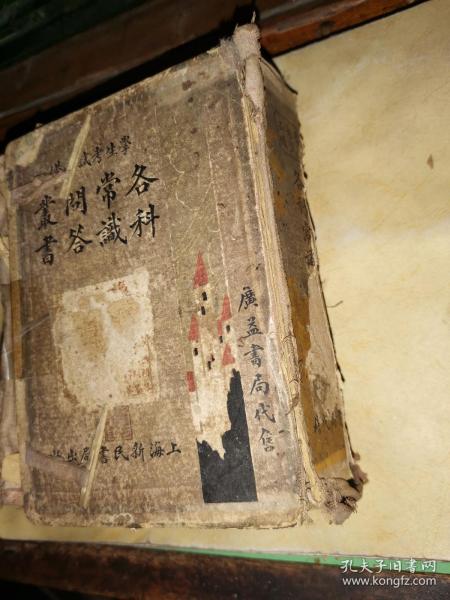 學生考試
各科
常識
問答
叢書
廣益書局代售
上海新民書局出版
孔夫子旧书网
www.kongfz.com